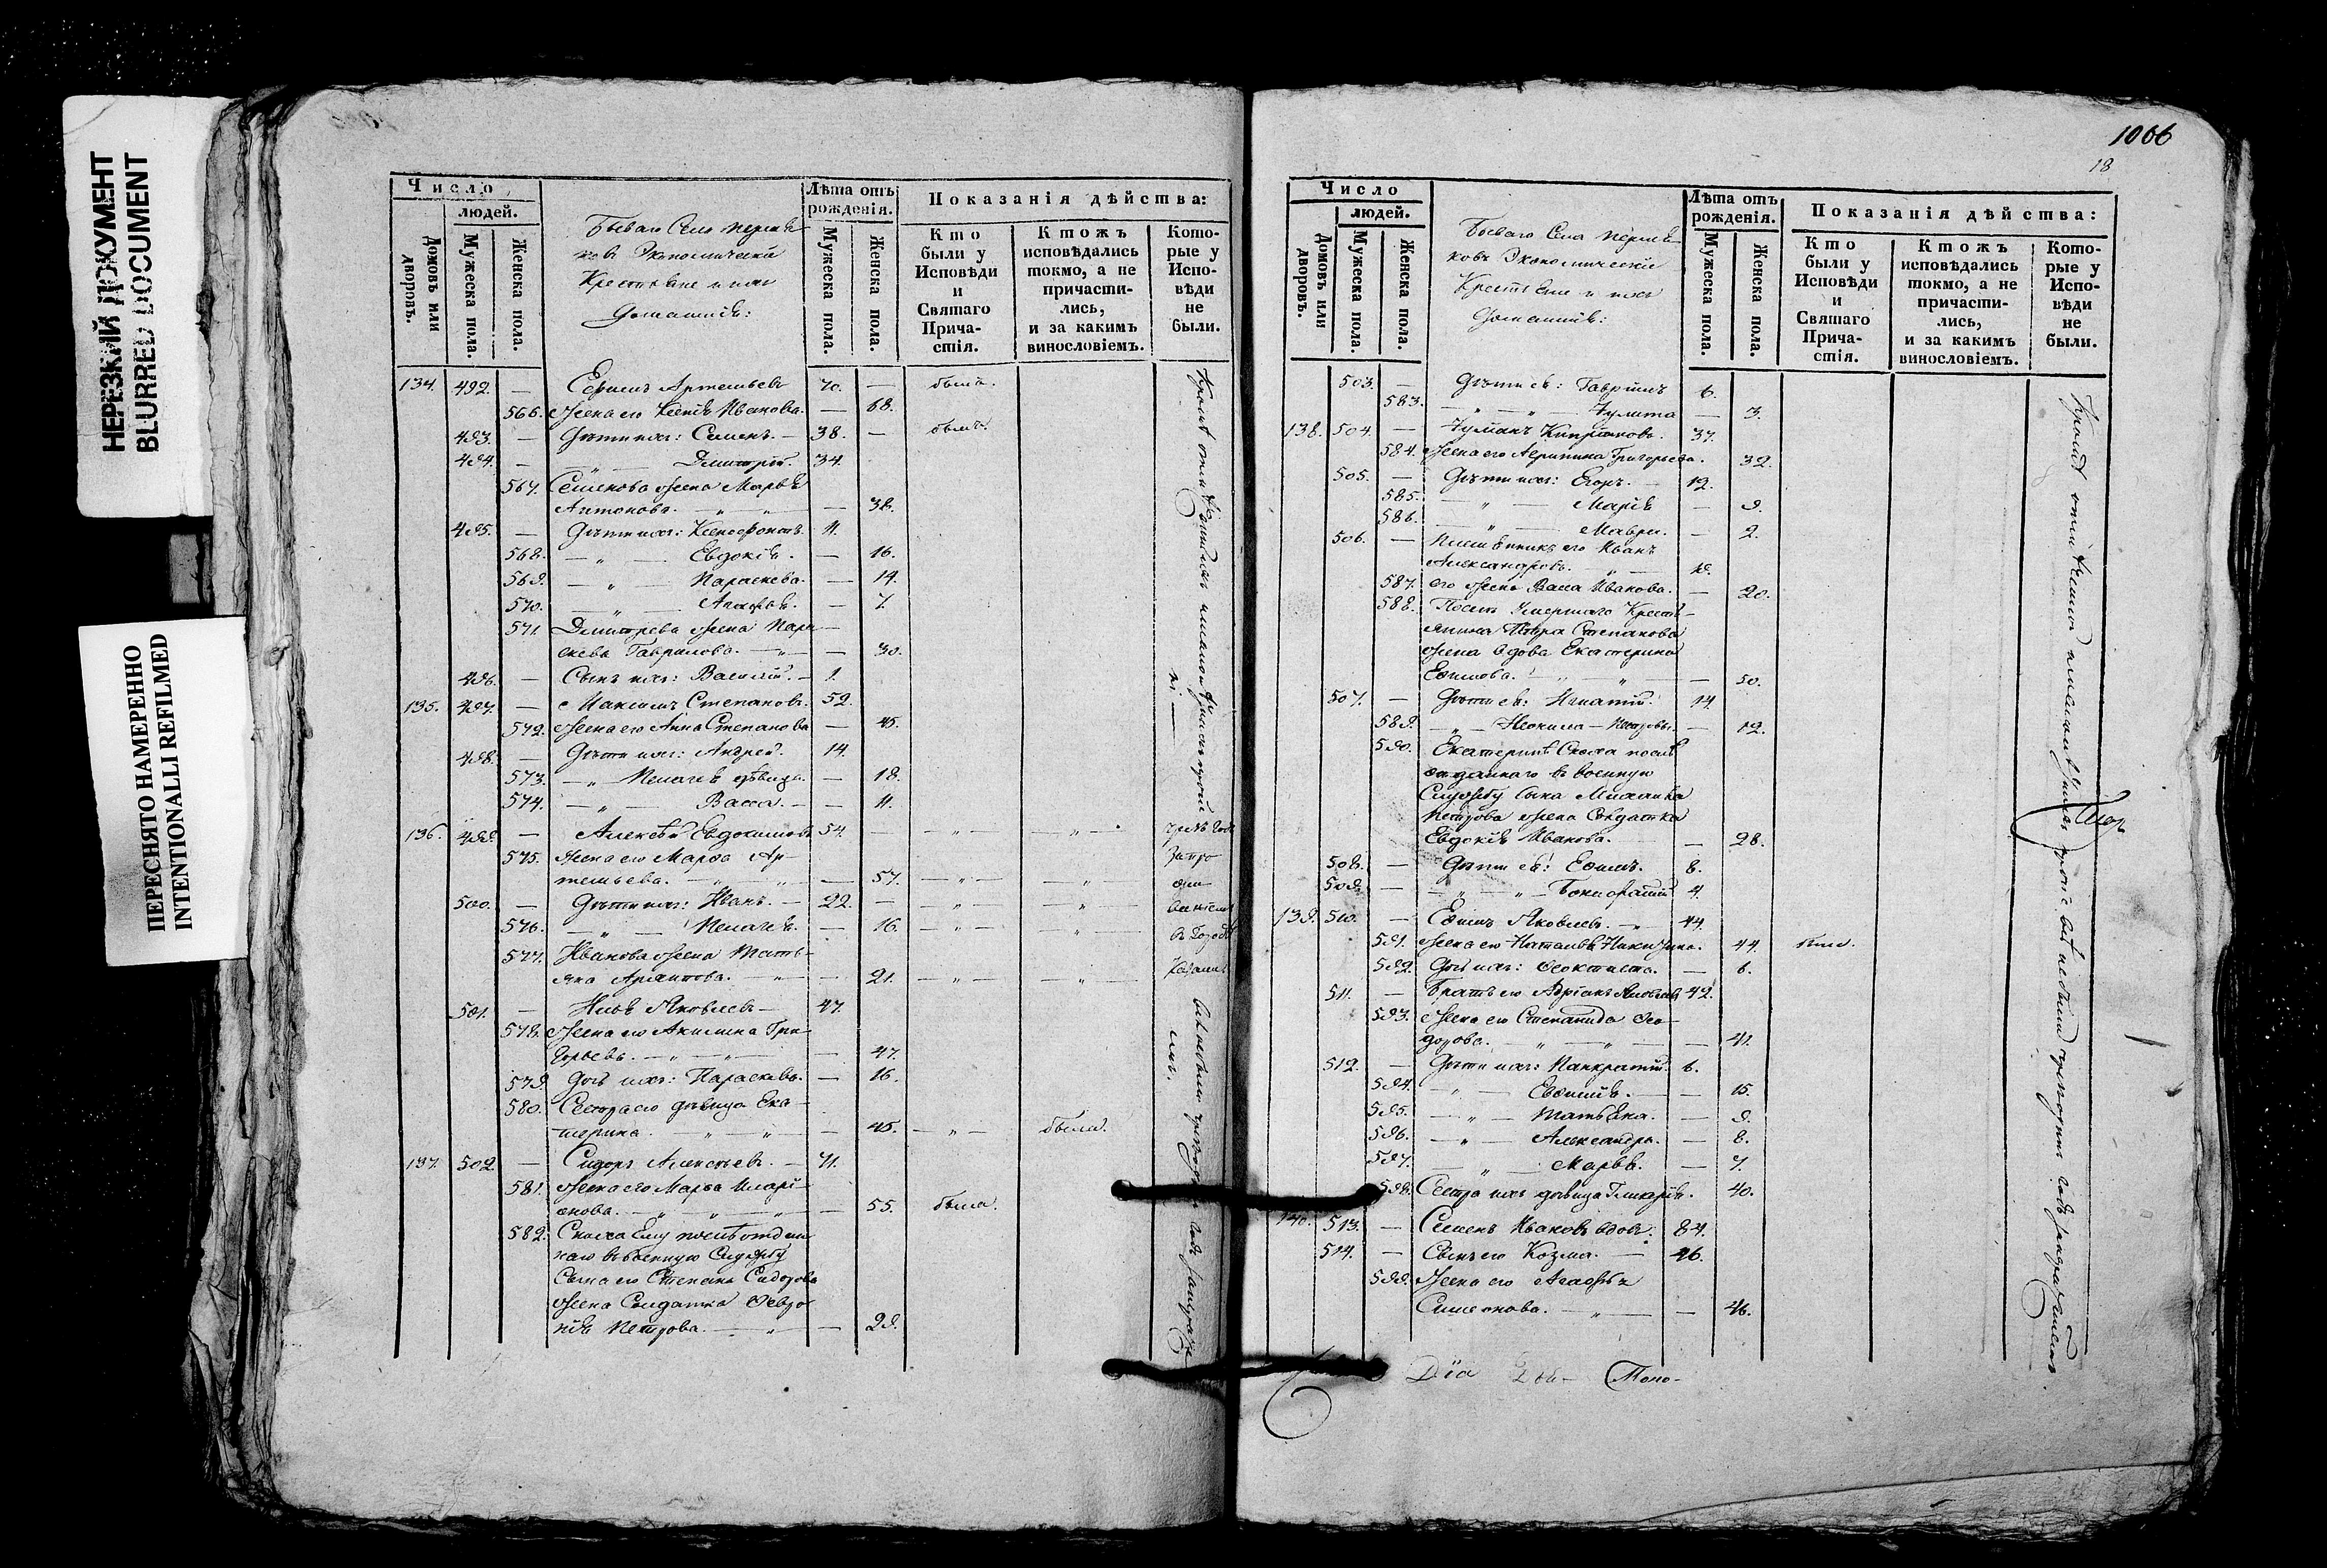 НЕРЕЗКИЙ ДОКУМЕНТ
BLURRED DOCUMENT
ПЕРЕСНЯТО НАМЕРЕННО
INTENTIONALLI REFILMED
Число
людей.
Домовъ или дворовъ.
Мужеска пола.
Женска пола.
Экономическія
Крестьяне и ихъ
домашнія:
Лѣта отъ рожденія.
Мужеска пола.
Женска пола.
Показанія дѣйства:
Кто были у Исповѣди и Святаго Прича-стія.
Ктожъ исповѣдались токмо, а не причасти-лись, и за какимъ винословіемъ.
Кото-рые у Испо-вѣди не были.
134. 492. — Ефимъ Артемьевъ 70. —
566. Жена его Ксенія Иванова. — 68.
493. — Дѣти ихъ: Симеонъ. — 38. —
494. — „ — Димитрій. 34.
567. Семенова жена Марья
Антонова. — „ — 38.
495. — Дѣти ихъ: Ксенофонтъ. 11.
568. — „ — Евдокія. — 16.
569. — „ — Параскева. — 14.
570. — „ — Агафія. — 7.
571. Димитрева жена Пара-
скева Гаврилова. — „ — 30.
496. — Сынъ ихъ: Василій. — 1.
135. 497. — Максимъ Степановъ. 52.
572. Жена его Анна Степанова — 45.
498. — Дѣти ихъ: Андрей. 14
573. — „ Пелагія дѣвица. — 18.
574. — „ — Васса. — 11.
136. 499. — Алексѣй Евдокимовъ 54. — — „ — — „ —
575. Жена его Марфа Ар-
темьева. — „ — 57. — „ — — „
500. — Дѣти ихъ: Иванъ. — 22. — — „ — „
576. — „ — Пелагія. — 16. — „ — „
577. Иванова жена Тать-
яна Архипова. — „ — 21. — „ — — „ —
501. — Яковлевъ — 47.
578. Жена его Акилина Гри-
горьева. — „ — „ — 47.
579. Дочь ихъ: Параскева. — 16.
580. Сестра его дѣвица Ека-
терина. „ — „ — 45. — „ — была.
137. 502. — Сидоръ Алексѣевъ. — 71.
581. Жена его Марфа Иларі-
онова. — „ — „ — 55. была.
582. Сноха Ему послѣ отдан-
наго въ военную Службу
Сына его Степана Сидорова
жена Солдатка Февро-
нія Петрова. — „ — 29.
1066
18
Число
людей.
Домовъ или дворовъ.
Мужеска пола.
Женска пола.
ковъ Экономическіе
Крестьяне и ихъ
домашнія:
Лѣта отъ рожденія.
Мужеска пола.
Женска пола.
Показанія дѣйства:
Кто были у Исповѣди и Святаго Прича-стія.
Ктожъ исповѣдались токмо, а не причасти-лись, и за какимъ винословіемъ.
Кото-рые у Испо-вѣди не были.
503. — Дѣти ея: Гавріилъ 6.
583. — „ — Іулита — 3.
138. 504. — Іуліанъ Кипріановъ. 37.
584. Жена его Агрипина Григорьева. 32.
505. — Дѣти ихъ: Егоръ. — 12.
585. „ — Марія — 9.
586. „ — Мавра. — 2.
506. — Племянникъ его Иванъ
Александровъ. — „ 19.
587. его жена Васса Иванова. — 20.
588. Послѣ Умершаго Кресть-
янина Петра Степанова
жена вдова Екатерина
Ефимова. „ „ — 50.
507. — Дѣти ея: Игнатій. 14.
589. „ — 12.
590. Екатеринѣ Сноха послѣ
отданнаго въ военную
Службу Сына Михаила
Петрова жена Солдатка
Евдокія Иванова. — 28.
508. — Дѣти ея: Ефимъ. 8.
509. — „ — „ — 4.
139. 510. — Ефимъ Яковлевъ. — „ 44.
591. Жена его Наталья Никитина. 44.
592. Дочь ихъ: Феоктиста. — 6.
511. — Братъ его Адріанъ Яковлевъ 42.
593. Жена его Степанида Фео-
дорова. „ — „ — 41.
512. — Дѣти ихъ: Панкратій. 6.
594. „ — Евфимія. — 15.
595. — „ — Татьяна. — 9.
596. — „ — Александра. — 8.
597. — „ — Марья. — 7.
598. Сестра ихъ дѣвица Гликерія. 40.
140. 513. — Семенъ Ивановъ вдовъ. 84.
514. — Сынъ его Козма. — 46.
599. Жена его Агафья
Симеонова. — „ — 46.